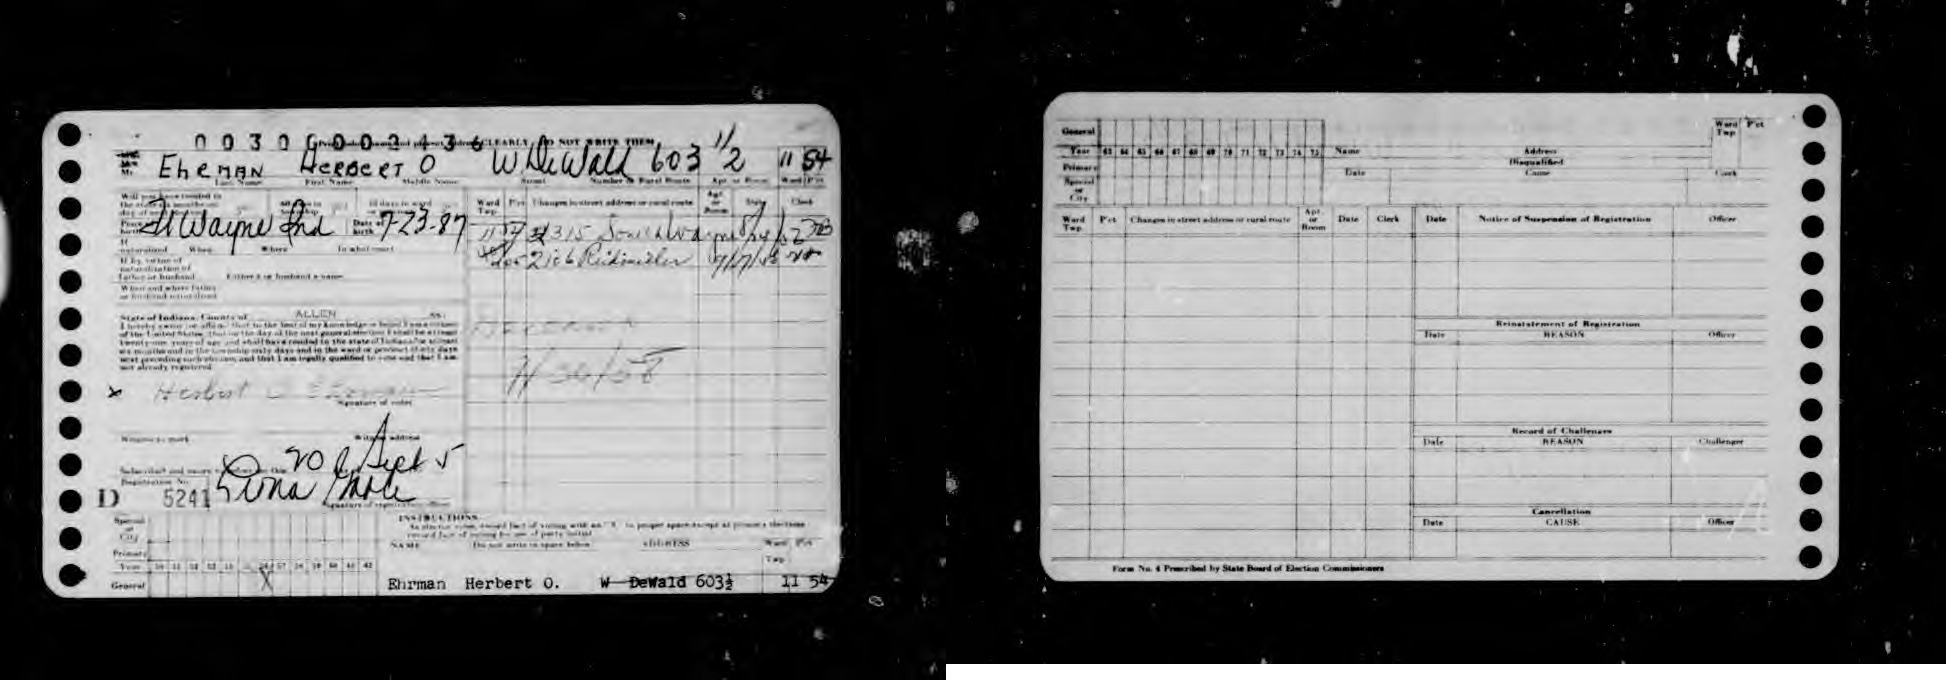 00306002436
CLEARLY, DO NOT WRITE THEM
Mr. Ehrman Herbert O W DeWald 603 1/2 11 54
Last Name First Name Middle Name Street Number or Rural Route Apt. or Room Ward Pct
Will you have resided in
the state six months on
day of
Ft Wayne Ind Date of birth 7-23-87
If naturalized When Where In what court
If by virtue of
naturalization of
father or husband Father's or husband's name
When and where father
or husband naturalized
Ward Twp. Pct Changes in street address or rural route Apt. or Room Clerk
315 South Wayne
State of Indiana, County of ALLEN SS:
I hereby swear (or affirm) that to the best of my knowledge or belief I am a citizen
of the United States, that on the day of the next general election I shall be at least
twenty-one years of age and shall have resided in the state of Indiana for at least
six months and in the township sixty days and in the ward or precinct thirty days
next preceding such election, and that I am legally qualified to vote and that I am
not already registered.
Deceased
x Herbert O Ehrman
Signature of voter
Witness to mark Witness address
Subscribed and sworn to before me this 20 Sept 5
Registration No.
D 5241
Signature of registration officer
Special or City
Primary
Year
General X
INSTRUCTIONS
NAME Do not write in space below ADDRESS Ward Twp. Pct
Ehrman Herbert O. W DeWald 603½ 11 54
General
Year 63 64 65 66 67 68 69 70 71 72 73 74 75 Name Address Ward Twp P'ct
Primary Disqualified
Special or City Date Cause Clerk
Ward Twp. P'ct Changes in street address or rural route Apt. or Room Date Clerk
Date Notice of Suspension of Registration Officer
Reinstatement of Registration
Date REASON Officer
Record of Challenges
Date REASON Challenger
Cancellation
Date CAUSE Officer
Form No. 4 Prescribed by State Board of Election Commissioners